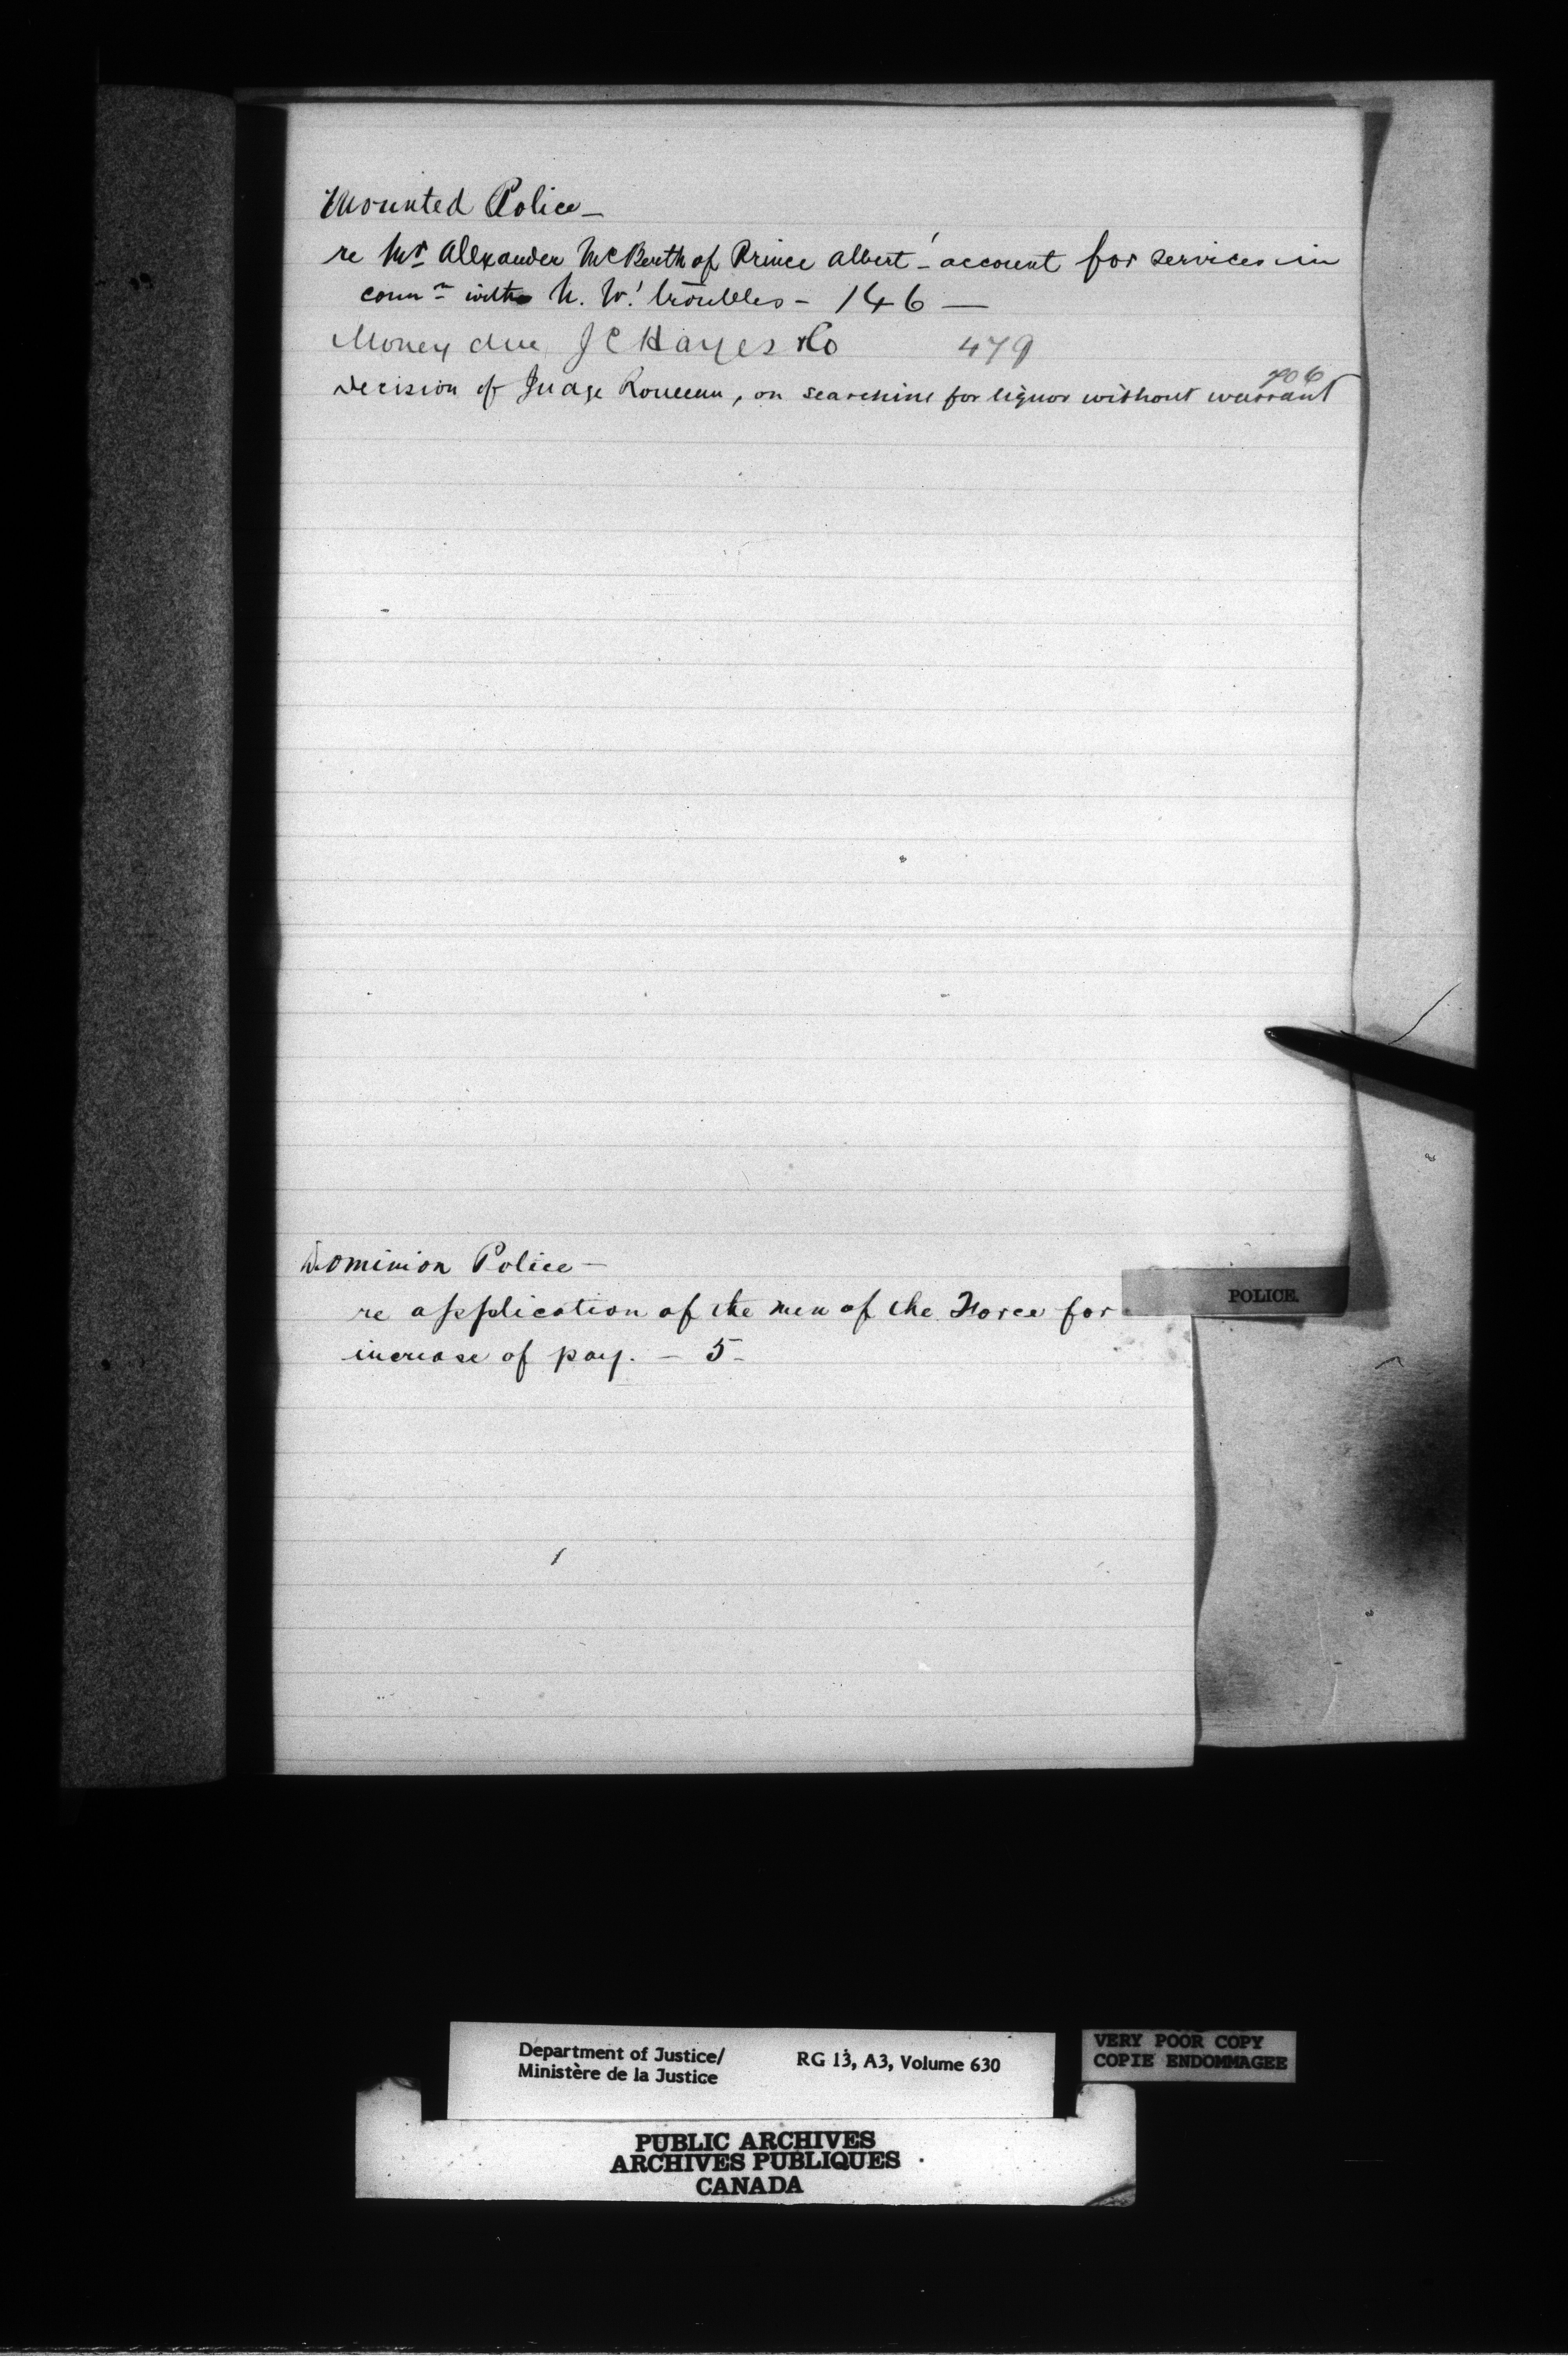 Mounted Police —
re Mr Alexander McBeath of Prince Albert - account for services in
connn with N. W. troubles - 146 —
Money due J C Hayes & Co 479
706
Decision of Judge Rouleau, on searching for liquor without warrant
Dominion Police —
re application of the men of the Force for
increase of pay. - 5 -
POLICE.
Department of Justice/
Ministère de la Justice
RG 13, A3, Volume 630
VERY POOR COPY
COPIE ENDOMMAGEE
PUBLIC ARCHIVES
ARCHIVES PUBLIQUES
CANADA